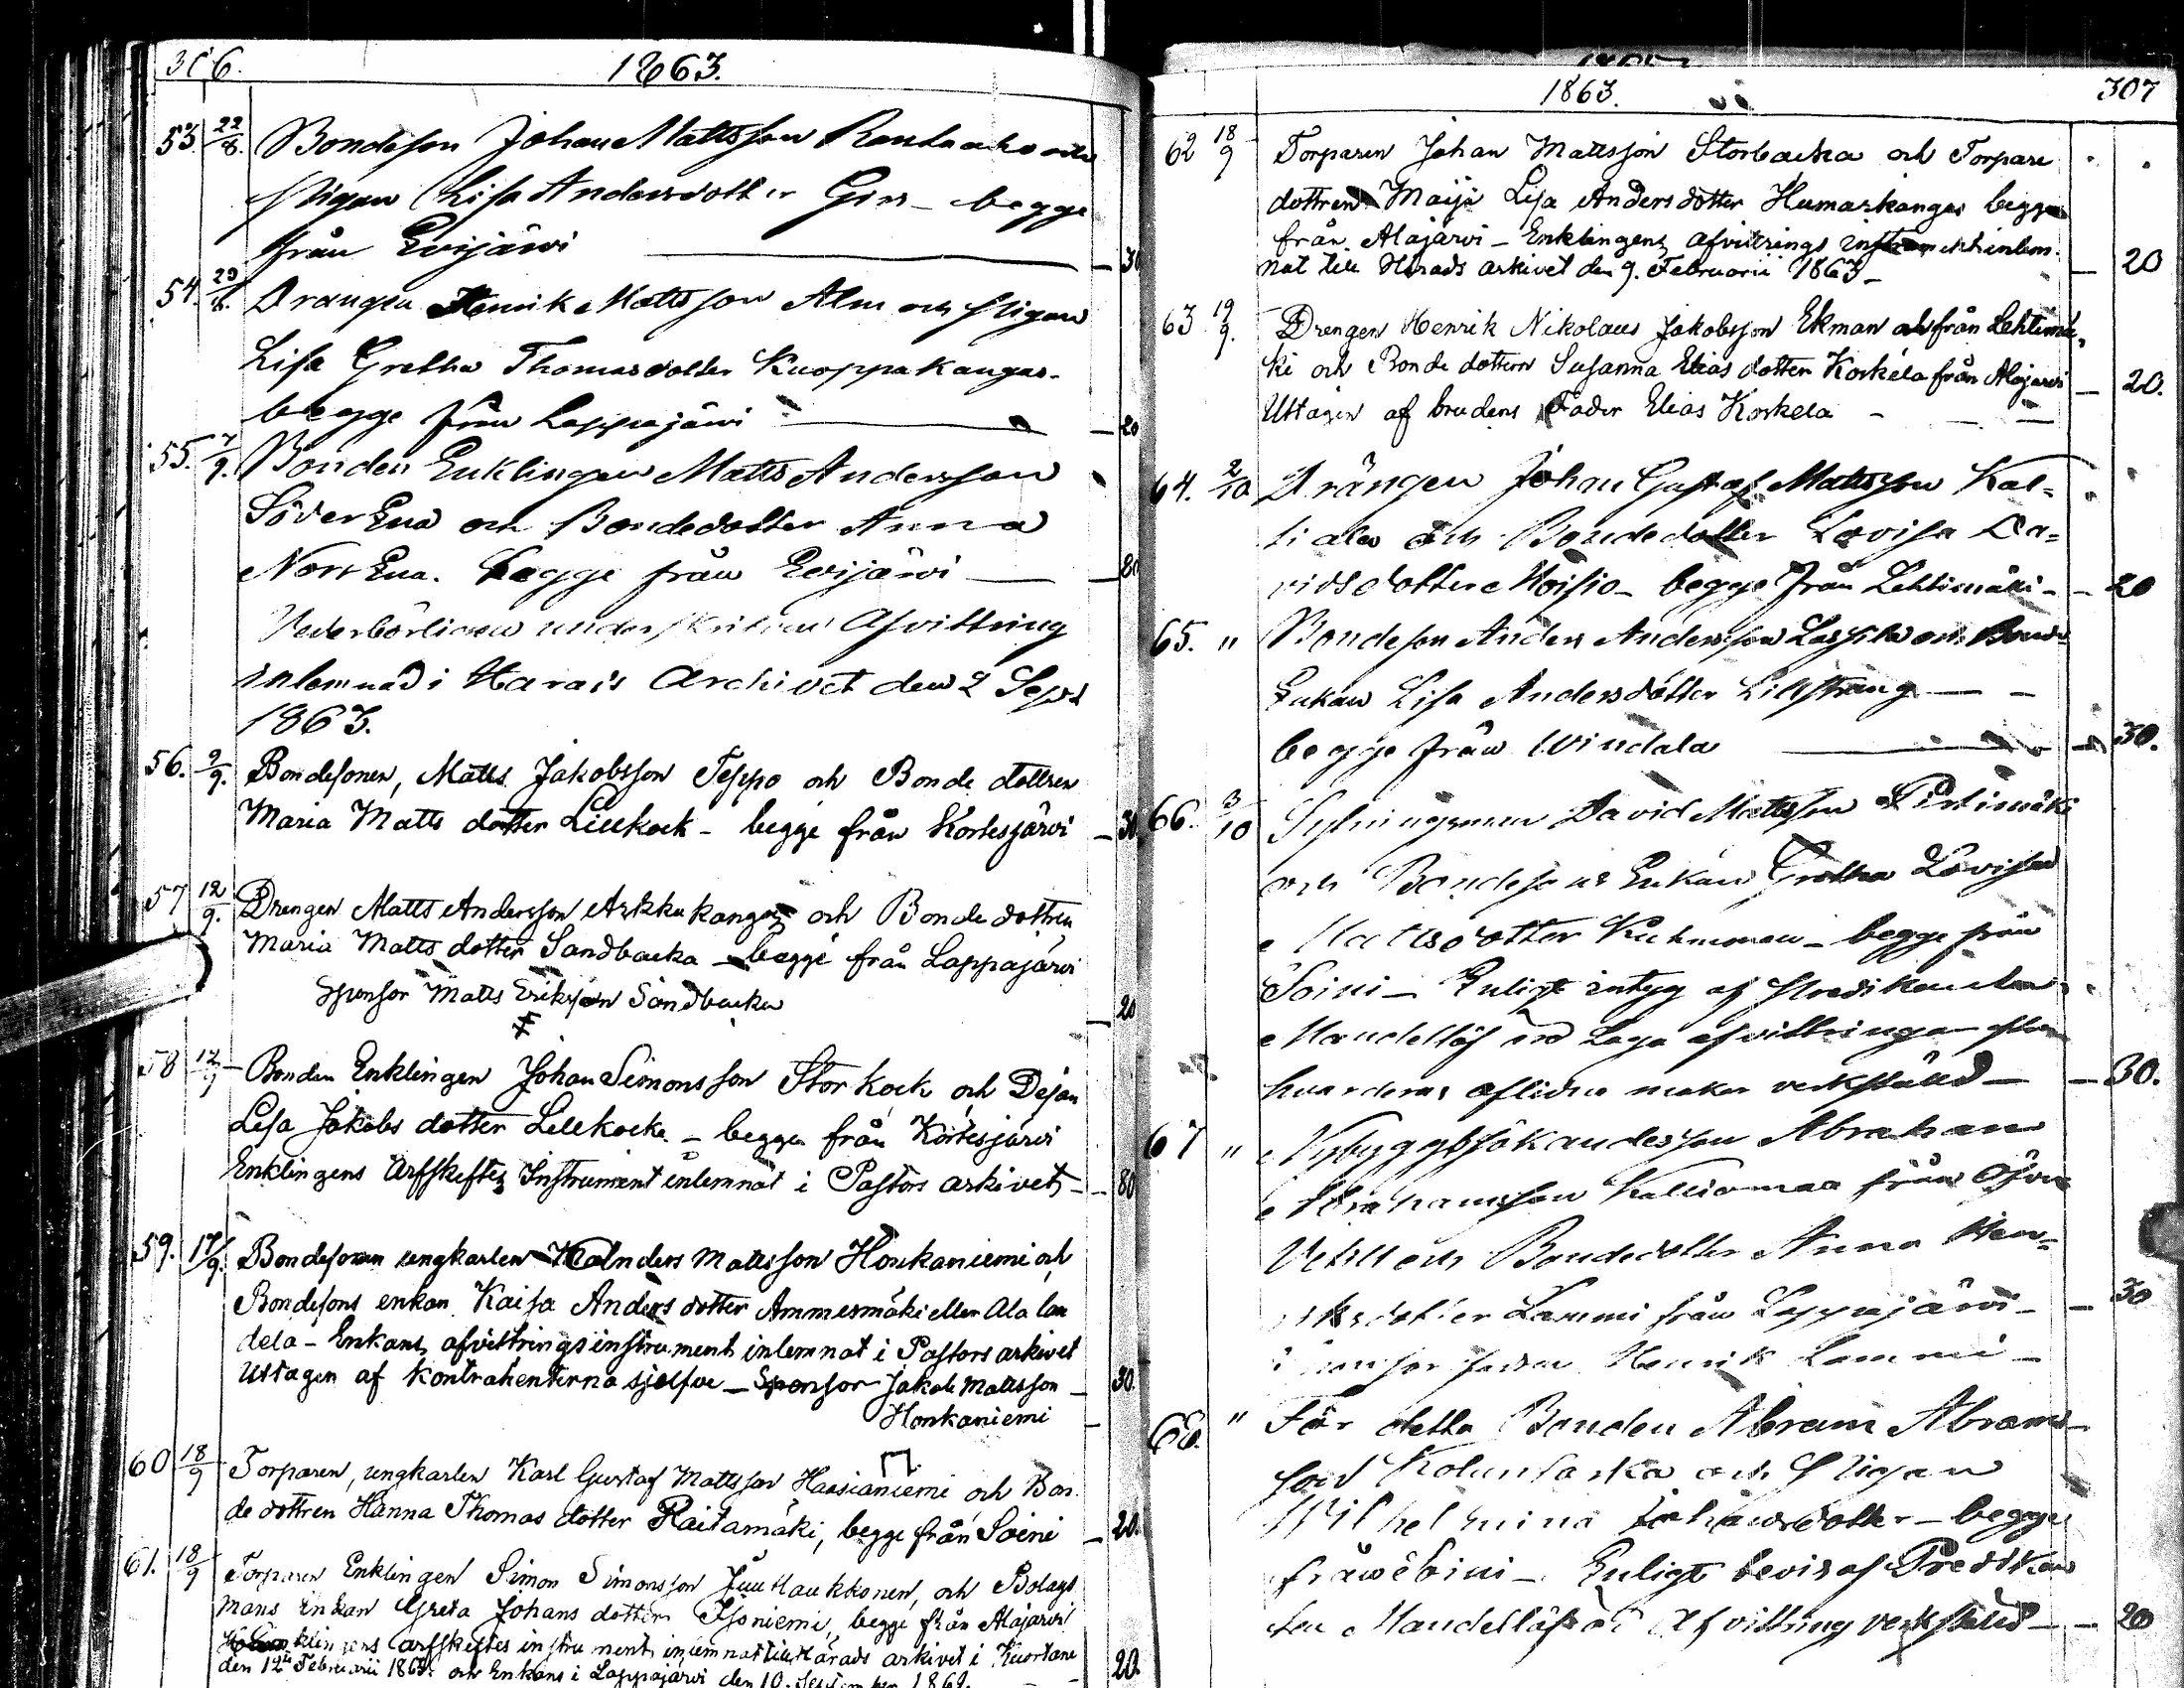 306.
1863.
53. 22/8. Bondeson Johan Mattsson Rantaaho och
Pigan Lisa Andersdotter Gers – begge
från Evijärvi — 30
54. 29/8. Drängen Henrik Mattsson Alm och Pigan
Lisa Gretha Thomasdotter Kuoppakangas
begge från Lappajärvi — 20
55. 7/9. Bonden Enklingen Matts Andersson
Söder Ena och Bondedotter Anna
Norr Ena. begge från Evijärvi — 80
Vederbörligen underskrifven Afvittring
inlemnad i Härads Archivet den 2 Sept
1863.
56. 9/9. Bondesonen, Matts Jakobsson Teppo och Bonde dottren
Maria Matts dotter Lillkock – begge från Kortesjärvi – 30
57 12/9. Drengen Matts Andersson Arkkukangas och Bonde dottren
Maria Matts dotter Sandbacka – begge från Lappajärvi
Sponsor Matts Eriksson Sandbacka – 20
58 12/9 Bonden Enklingen Johan Simonsson Storkock och Dejan
Lisa Jakobs dotter Lillkock – begge från Kortesjärvi
Enklingens arfskiftes Instrument inlemnat i Pastors arkivet – 80
59. 17/9. Bondesonen ungkarlen Anders Mattsson Honkaniemi och
Bondesons enkan Kaisa Anders dotter Ammesmäki eller Ala lan
dela – Enkans afvittringsinstrument inlemnat i Pastors arkivet
Uttagen af kontrahenterna sjelfve – Sponsor Jakob Mattsson – 30.
Honkaniemi
60 18/9 Torparen, ungkarlen Karl Gustaf Mattsson Haasianiemi och Bon
de dottren Hanna Thomas dotter Raitamäki, begge från Soini – 20.
61. 18/9 Torparen Enklingen Simon Simonsson Juu Haukkonen, och Bolags
mans Enkan Greta Johans dotter Isoniemi, begge från Alajärvi
Enklingens arfskeftes instrument inlemnat till Härads arkivet i Kuortane
den 12te Februarii 1863. och Enkans i Lappajärvi den 10. September 186 20.
1863.
307
62 18/9 Torparen Johan Mattsson Storbacka och Torpare
dottren Maija Lisa Anders dotter Humarkangas begge
från Alajärvi – Enklingens afvittrings instrument inlem
nat till Härads arkivet den 9. Februarii 1863 – 20
63 19/9. Drengen Henrik Nikolaus Jakobsson Ekman från Lehtimä
ki och Bonde dottern Susanna Elias dotter Korkela från Alajärvi – 20.
Uttagen af brudens Fader Elias Korkela –
64. 2/10 Drängen Johan Gustaf Mattsson Kal=
liala och Bondedotter Lovisa Da=
vidsdotter Hoisjo – begge från Lehtimäki – 20
65. " Bondeson Anders Andersson Lassila och Bonde
Enkan Lisa Andersdotter Lillstrang –
begge från Windala — 30.
66. 3/10 Sytningsman David Mattsson Pirttimäki
och Bondesons Enkan Gretha Lovisa
Mattsdotter Kuhmonen – begge från
Soini – Enligt intyg af Predikanten
Mandellöf är Laga afvittringar efter
hvarderas aflidne makar verkstäld – 30.
67 " Nybyggssökandesson Abraham
Abrahamsson Kalliomaa från Öfver
Vetil och Bondedotter Anna Hen=
riksdotter Lammi från Lappajärvi – 30
Sponsor fadren Henrik Lammi –
68. " För detta Bonden Abram Abrams
son Kolunsarka och Pigan
Wilhelmina Johansdotter – begge
från Soini – Enligt bevis af Predikan
ten Mandellöf är Afvittring verkstäld – 20